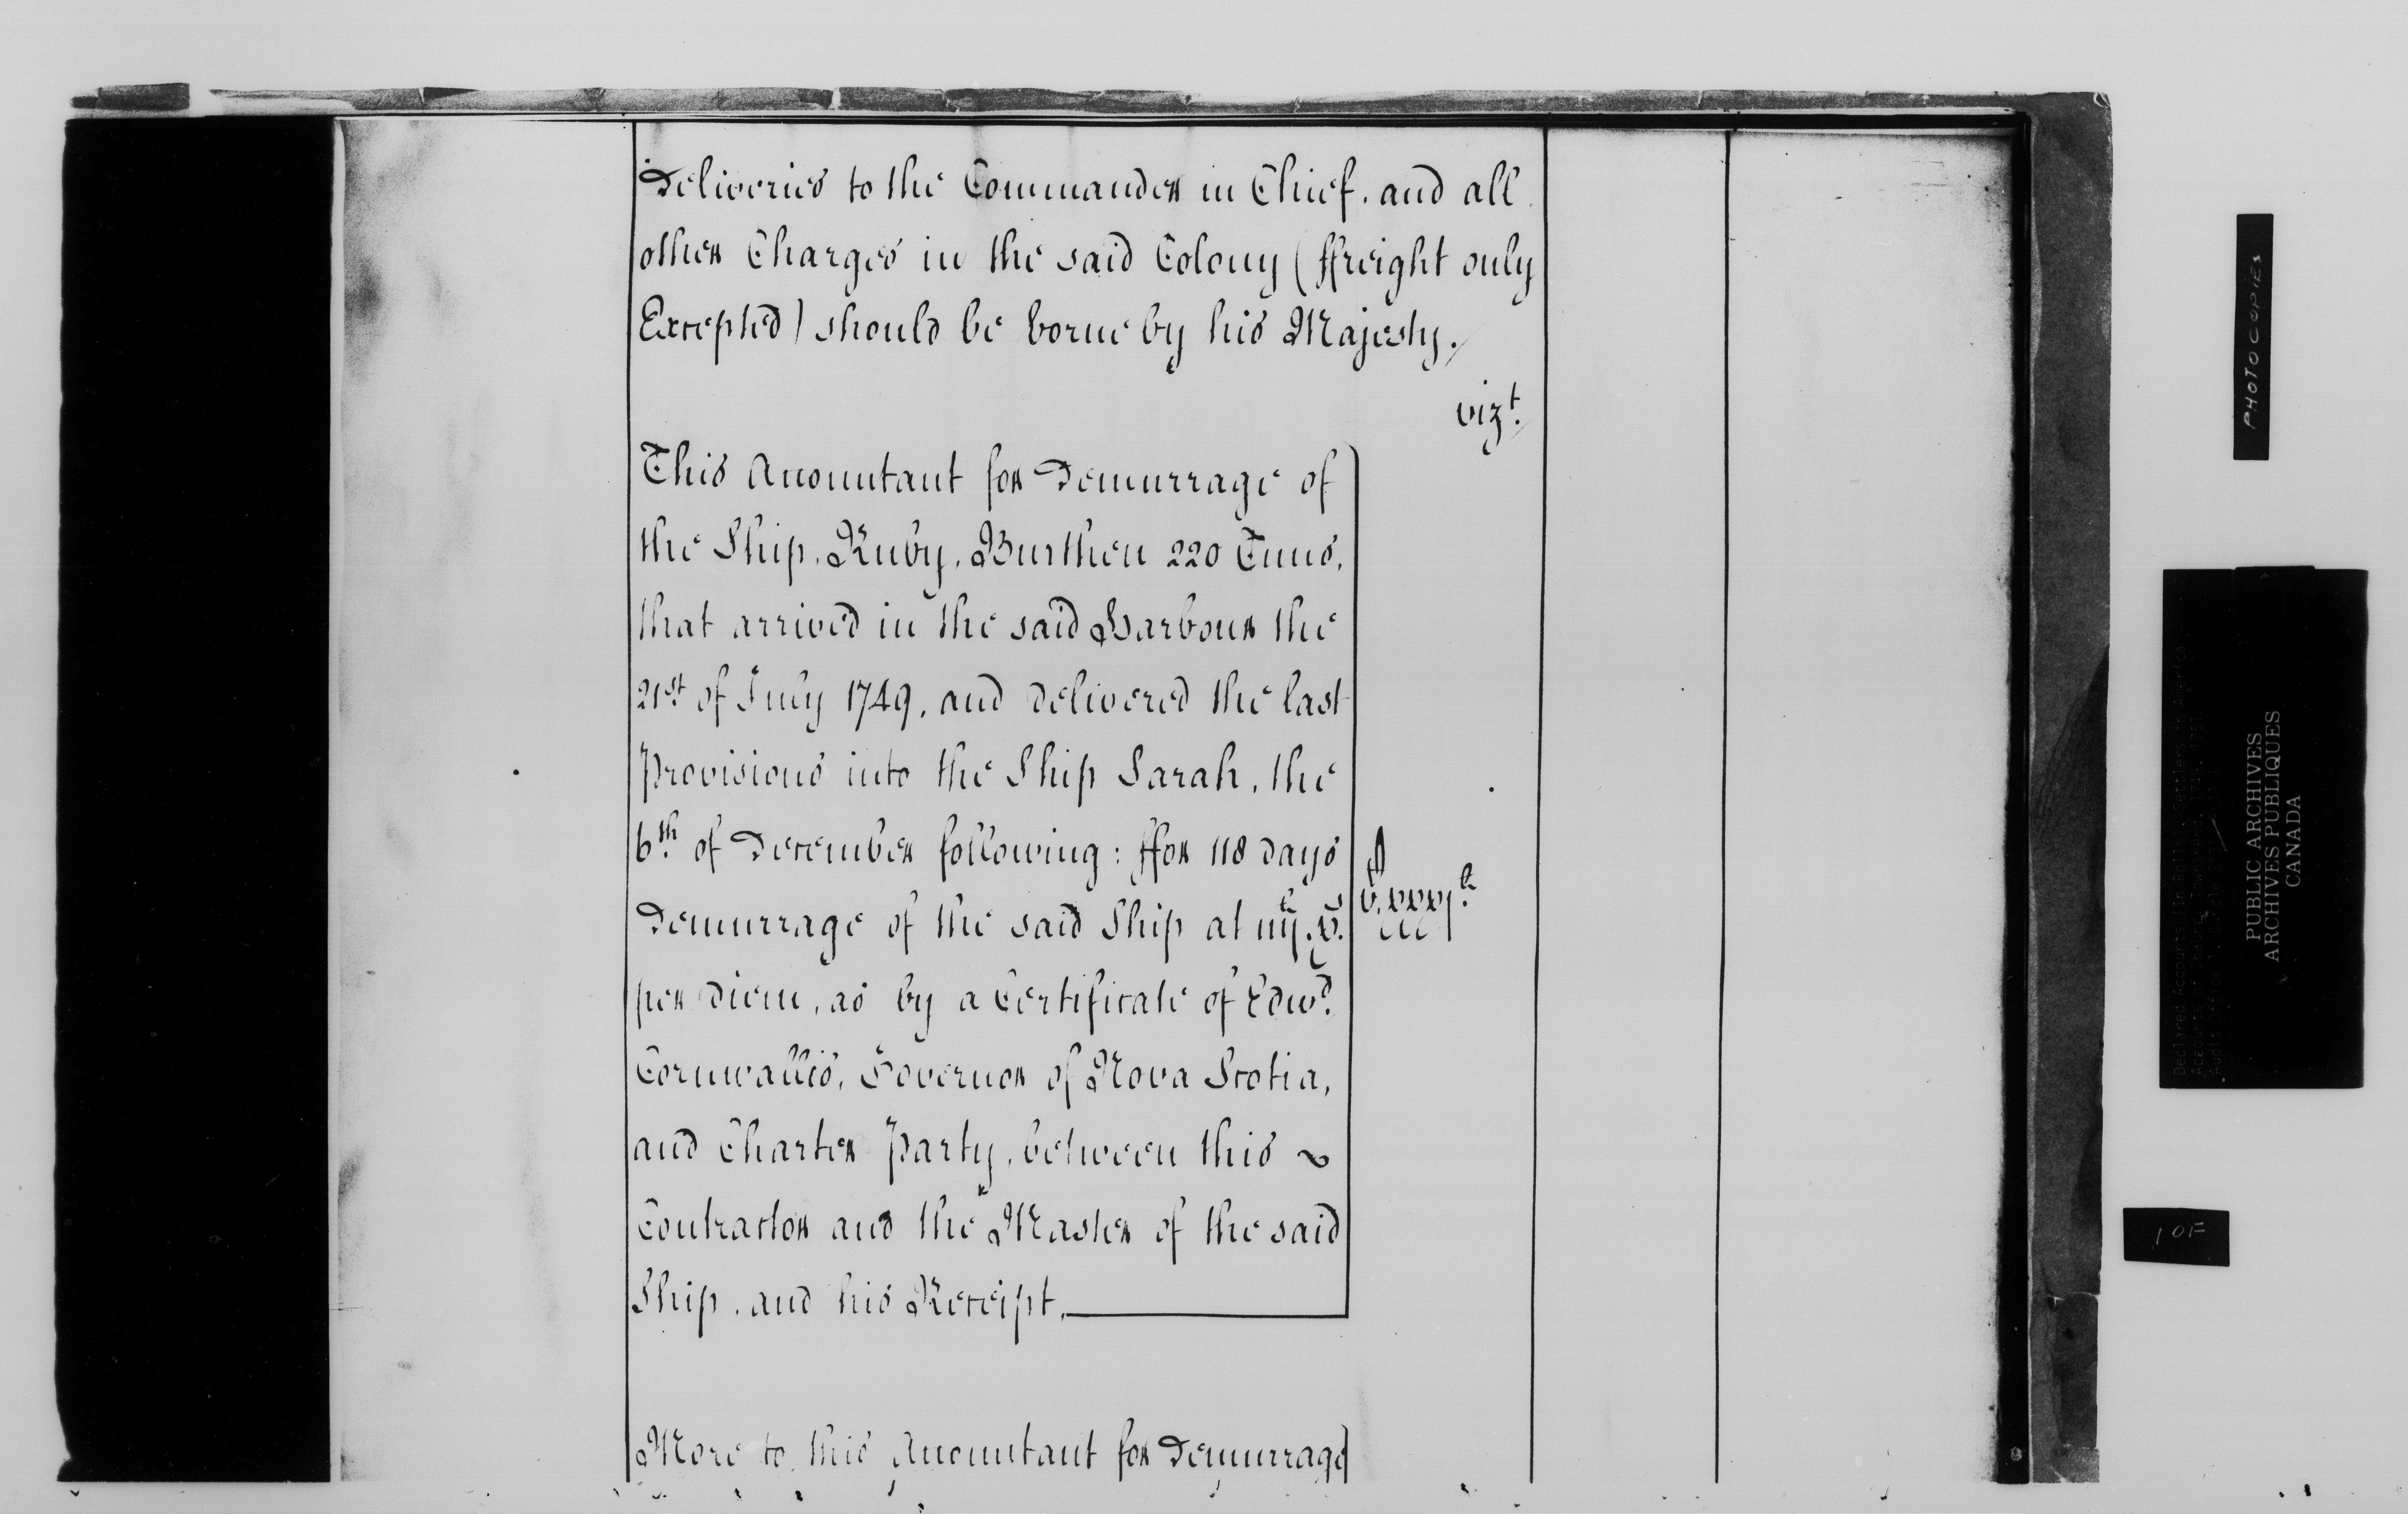 Deliveries to the Commander in Chief, and all
other Charges in the said Colony (ffreight only
Excepted) should be borne by his Majesty.
vizt.
This Accountant for Demurrage of
the Ship, Ruby, Burthen 220 Tuns,
that arrived in the said Harbour the
21st. of July 1749, and delivered the last
Provisions into the Ship Sarah, the
6th. of December following: ffor 118 days
Demurrage of the said Ship at iiij.
per diem, as by a Certificate of Edwd.
Cornwallis, Governor of Nova Scotia,
and Charter Party, between this
Contractor and the Master of the said
Ship, and his Receipt.
More to this Accountant for Demurrage
PHOTOCOPIES
PUBLIC ARCHIVES
ARCHIVES PUBLIQUES
CANADA
1 OF